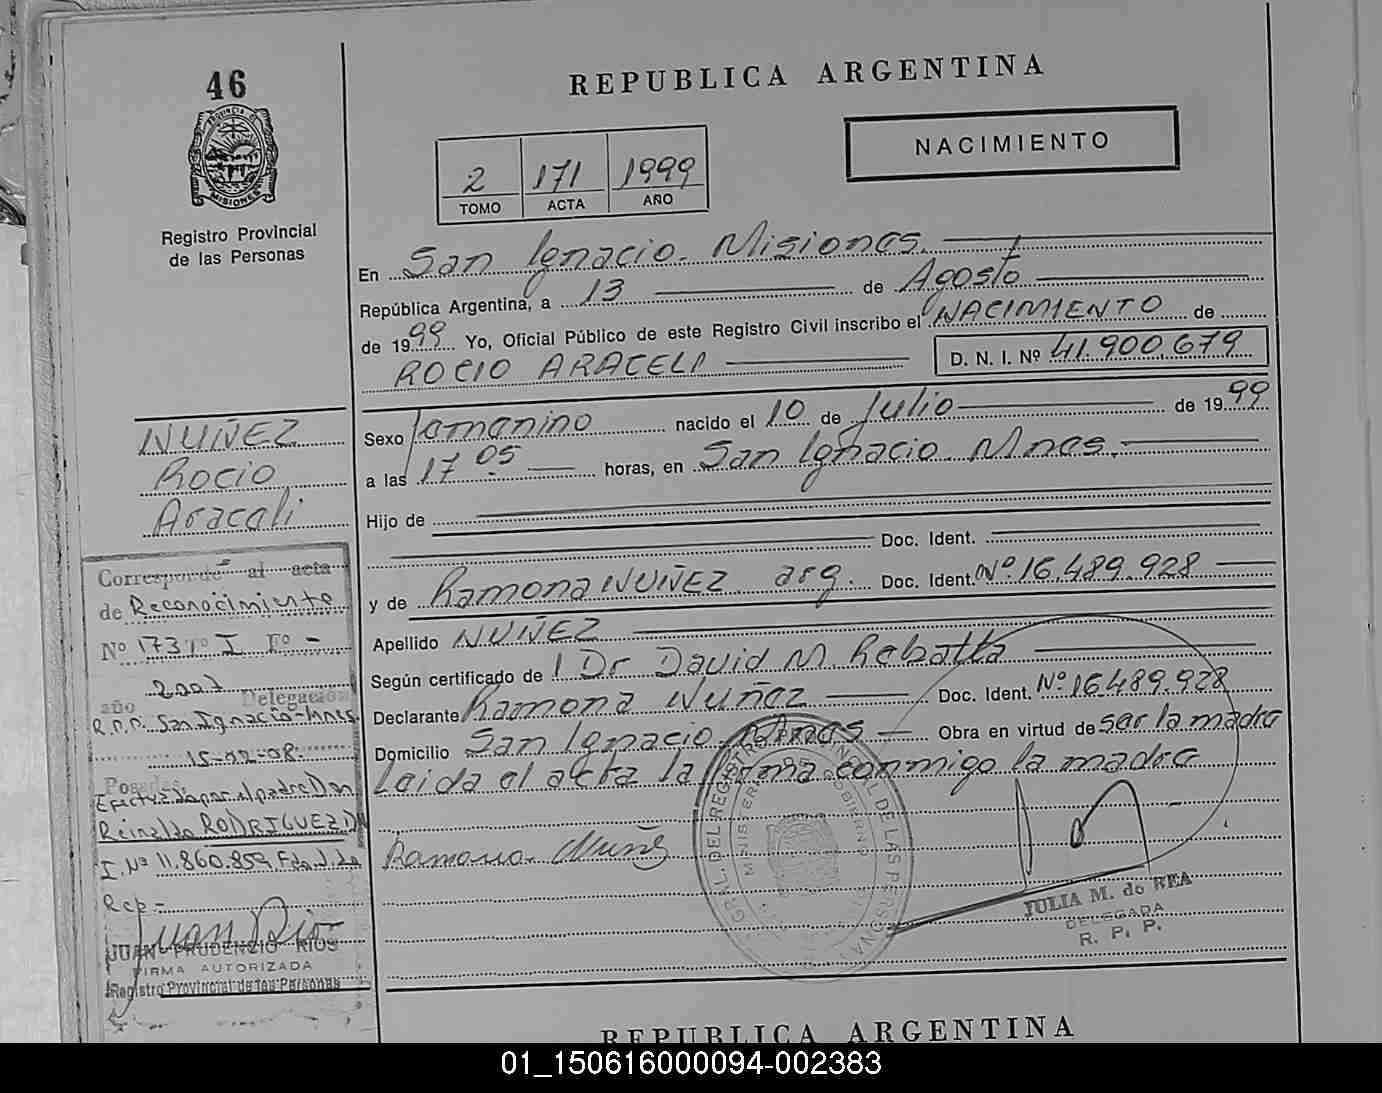 46
PROVINCIA DE
MISIONES
Registro Provincial
de las Personas
REPUBLICA ARGENTINA
NACIMIENTO
2 171 1999
TOMO ACTA AÑO
En San Ignacio. Misiones.
República Argentina, a 13 de Agosto
de 1999 Yo, Oficial Público de este Registro Civil inscribo el NACIMIENTO de
ROCIO ARACELI D. N. I. Nº 41.900.679
Sexo femenino nacido el 10 de Julio de 1999
a las 17 05 horas, en San Ignacio. Mnes.
Hijo de
Doc. Ident.
y de Ramona NUÑEZ arg. Doc. Ident. Nº 16.489.928
Apellido NUÑEZ
Según certificado de l Dr David M. Rebatta
Declarante Ramona Nuñez Doc. Ident. Nº 16.489.928
Domicilio San Ignacio Mnes Obra en virtud de ser la madre
Leida el acta la firma conmigo la madre
Ramona Nuñez
JULIA M. de REA
DELEGADA
R. P. P.
NUÑEZ
Rocio
Araceli
Corresponde al acta
de Reconocimiento
Nº 173 Tº I Fº -
año 2007 Delegación
R.P.P. San Ignacio-Mnes
15-02-08.
Posadas
Efectuado por el padre Don
Reinaldo RODRIGUEZ D.
I. Nº 11.860.859. Fdo. J. de
Rcp-
JUAN PRUDENCIO RIOS
FIRMA AUTORIZADA
Registro Provincial de las Personas
REPUBLICA ARGENTINA
01_150616000094-002383